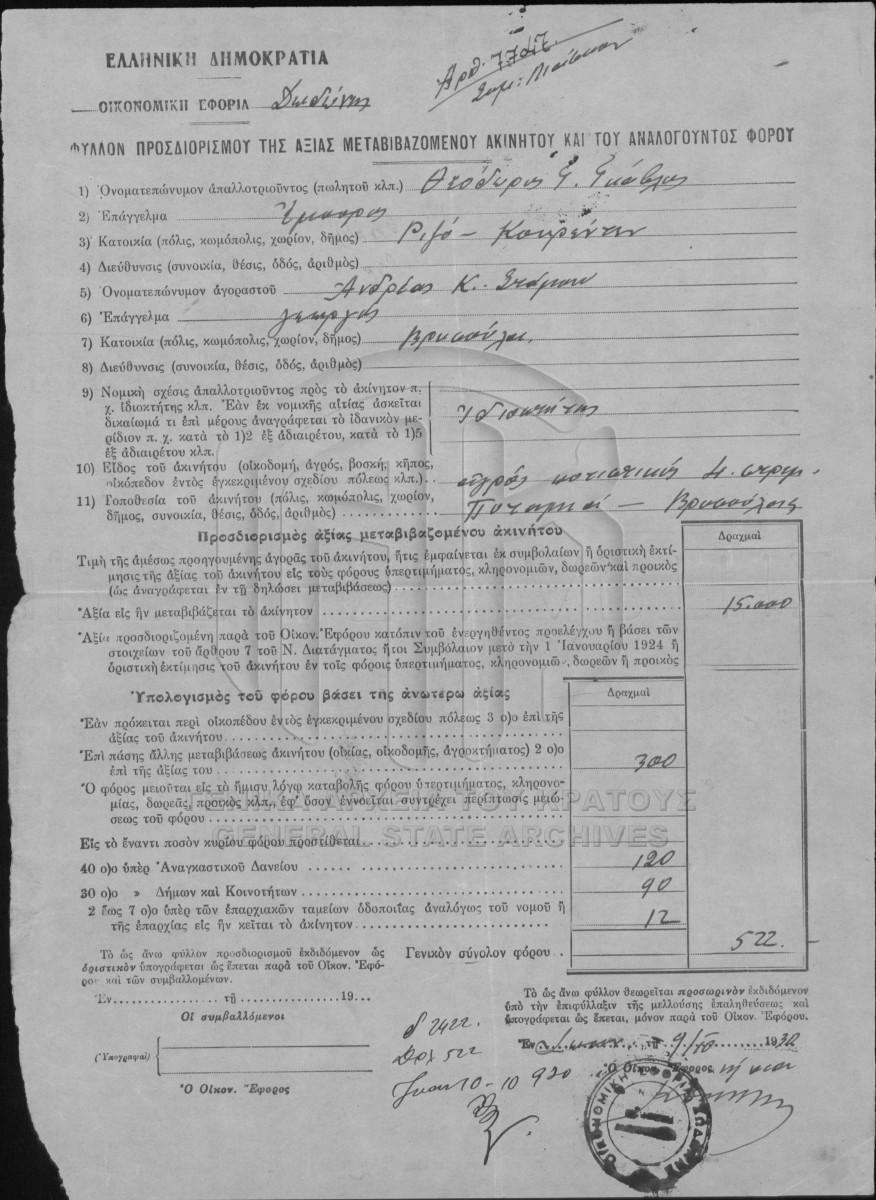 Ἀρθ. 7747
ΕΛΛΗΝΙΚΗ ΔΗΜΟΚΡΑΤΙΑ
ΟΙΚΟΝΟΜΙΚΗ ΕΦΟΡΙΑ Δωδώνης
ΦΥΛΛΟΝ ΠΡΟΣΔΙΟΡΙΣΜΟΥ ΤΗΣ ΑΞΙΑΣ ΜΕΤΑΒΙΒΑΖΟΜΕΝΟΥ ΑΚΙΝΗΤΟΥ ΚΑΙ ΤΟΥ ΑΝΑΛΟΓΟΥΝΤΟΣ ΦΟΡΟΥ
1) Ὀνοματεπώνυμον ἀπαλλοτριοῦντος (πωλητοῦ κλπ.) Θεόδωρος Γ.
2) Ἐπάγγελμα Ἔμπορος
3) Κατοικία (πόλις, κωμόπολις, χωρίον, δῆμος) Ριζό - Κουρέντων
4) Διεύθυνσις (συνοικία, θέσις, ὁδός, ἀριθμός)
5) Ὀνοματεπώνυμον ἀγοραστοῦ Ἀνδρέας Κ. Στάμου
6) Ἐπάγγελμα γεωργός
7) Κατοικία (πόλις, κωμόπολις, χωρίον, δῆμος) Βρυσούλα
8) Διεύθυνσις (συνοικία, θέσις, ὁδός, ἀριθμός)
9) Νομικὴ σχέσις ἀπαλλοτριοῦντος πρὸς τὸ ἀκίνητον π.
χ. ἰδιοκτήτης κλπ. Ἐὰν ἐκ νομικῆς αἰτίας ἀσκεῖται
δικαίωμά τι ἐπὶ μέρους ἀναγράφεται τὸ ἰδανικὸν με-
ρίδιον π. χ. κατὰ τὸ 1)2 ἐξ ἀδιαιρέτου, κατὰ τὸ 1)5
ἐξ ἀδιαιρέτου κλπ.
Ἰδιοκτήτης
10) Εἶδος τοῦ ἀκινήτου (οἰκοδομή, ἀγρός, βοσκή, κῆπος,
οἰκόπεδον ἐντὸς ἐγκεκριμένου σχεδίου πόλεως κλπ.) ἀγρὸς ποτιστικὸς 4 στρεμ.
11) Τοποθεσία τοῦ ἀκινήτου (πόλις, κωμόπολις, χωρίον,
δῆμος, συνοικία, θέσις, ὁδός, ἀριθμός) Ποταμιὰ - Βρυσούλας
Προσδιορισμὸς ἀξίας μεταβιβαζομένου ἀκινήτου
Δραχμαὶ
Τιμὴ τῆς ἀμέσως προηγουμένης ἀγορᾶς τοῦ ἀκινήτου, ἥτις ἐμφαίνεται ἐκ συμβολαίων ἢ ὁριστικὴ ἐκτί-
μησις τῆς ἀξίας τοῦ ἀκινήτου εἰς τοὺς φόρους ὑπερτιμήματος, κληρονομιῶν, δωρεῶν καὶ προικὸς
(ὡς ἀναγράφεται ἐν τῇ δηλώσει μεταβιβάσεως)
Ἀξία εἰς ἣν μεταβιβάζεται τὸ ἀκίνητον 15.000
Ἀξία προσδιοριζομένη παρὰ τοῦ Οἰκον. Ἐφόρου κατόπιν τοῦ ἐνεργηθέντος προελέγχου ἢ βάσει τῶν
στοιχείων τοῦ ἄρθρου 7 τοῦ Ν. Διατάγματος ἤτοι Συμβόλαιον μετὰ τὴν 1 Ἰανουαρίου 1924 ἢ
ὁριστικὴ ἐκτίμησις τοῦ ἀκινήτου ἐν τοῖς φόροις ὑπερτιμήματος, κληρονομιῶν, δωρεῶν ἢ προικὸς
Ὑπολογισμὸς τοῦ φόρου βάσει τῆς ἀνωτέρω ἀξίας
Δραχμαὶ
Ἐὰν πρόκειται περὶ οἰκοπέδου ἐντὸς ἐγκεκριμένου σχεδίου πόλεως 3 ο)ο ἐπὶ τῆς
ἀξίας τοῦ ἀκινήτου
Ἐπὶ πάσης ἄλλης μεταβιβάσεως ἀκινήτου (οἰκίας, οἰκοδομῆς, ἀγροκτήματος) 2 ο)ο
ἐπὶ τῆς ἀξίας του 300
Ὁ φόρος μειοῦται εἰς τὸ ἥμισυ λόγῳ καταβολῆς φόρου ὑπερτιμήματος, κληρονο-
μίας, δωρεᾶς, προικὸς κλπ., ἐφ' ὅσον ἐννοεῖται συντρέχει περίπτωσις μειώ-
σεως τοῦ φόρου
ΓΕΝΙΚΑ ΑΡΧΕΙΑ ΤΟΥ ΚΡΑΤΟΥΣ
GENERAL STATE ARCHIVES
Εἰς τὸ ἔναντι ποσὸν κυρίου φόρου προστίθεται
40 ο)ο ὑπὲρ Ἀναγκαστικοῦ Δανείου 120
30 ο)ο » Δήμων καὶ Κοινοτήτων 90
2 ἕως 7 ο)ο ὑπὲρ τῶν ἐπαρχιακῶν ταμείων ὁδοποιΐας ἀναλόγως τοῦ νομοῦ ἢ
τῆς ἐπαρχίας εἰς ἣν κεῖται τὸ ἀκίνητον 12
Γενικὸν σύνολον φόρου 522.
Τὸ ὡς ἄνω φύλλον προσδιορισμοῦ ἐκδιδόμενον ὡς
ὁριστικὸν ὑπογράφεται ὡς ἕπεται παρὰ τοῦ Οἰκον. Ἐφό-
ρου καὶ τῶν συμβαλλομένων.
Ἐν τῇ 19
Οἱ συμβαλλόμενοι
(Ὑπογραφαὶ)
Ὁ Οἰκον. Ἔφορος
δ 2422.
Δρχ 522
10-10 930
Τὸ ὡς ἄνω φύλλον θεωρεῖται προσωρινὸν ἐκδιδόμενον
ὑπὸ τὴν ἐπιφύλλαξιν τῆς μελλούσης ἐπαληθεύσεως καὶ
ὑπογράφεται ὡς ἕπεται, μόνον παρὰ τοῦ Οἰκον. Ἐφόρου.
Ἐν τῇ 9/10 1930
Ὁ Οἰκον. Ἔφορος
ΟΙΚΟΝΟΜΙΚΗ ΕΦΟΡΙΑ ΔΩΔΩΝΗΣ